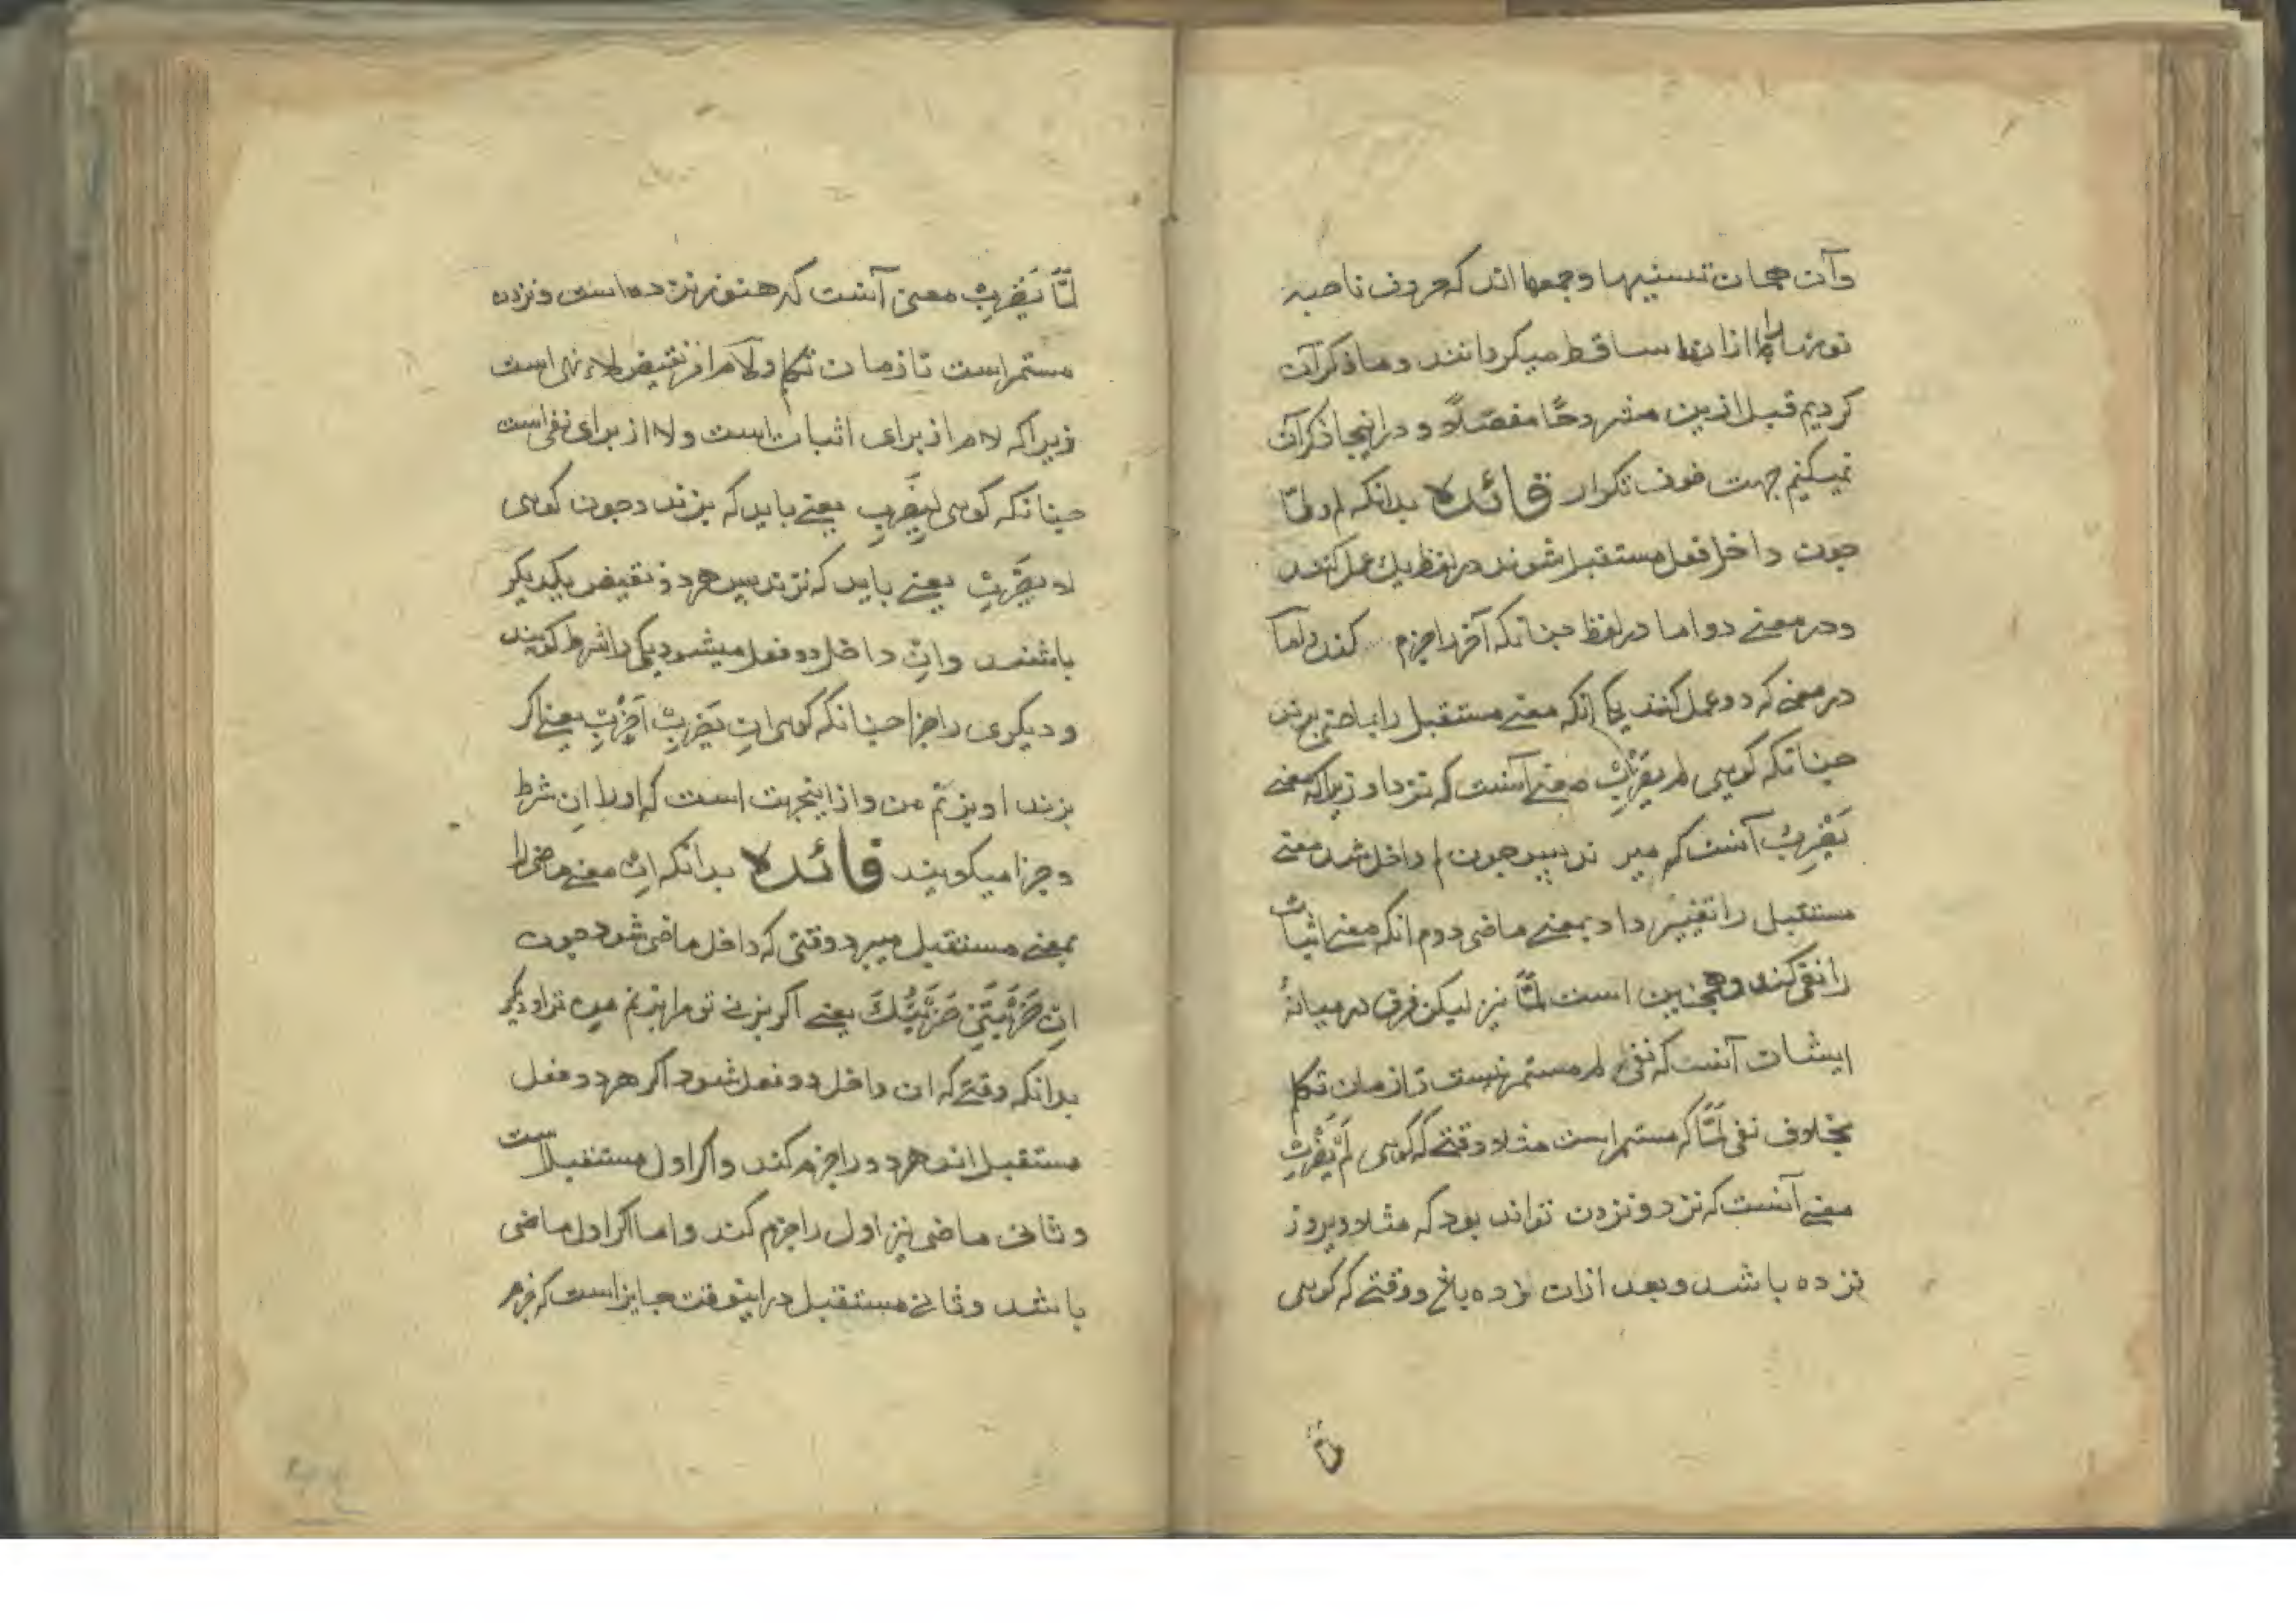 وآن همان تسنیها وجمعها اند که حروف ناصبه
نونها را از انها ساقط میکردانند وما ذکر آن
کردیم قبل ازین مشروحًا مفصّلًا و در اینجا ذکر آن
نمیکنیم جهت خوف تکرار فائده بدانکه لم ولمّا
جون داخل فعل مستقبل شوند در لفظ یك عمل کنند
ودر معنے دو اما در لفظ جنانکه آخر را جزم کنند واما
در معنے که دو عمل کنند یکے انکه معنے مستقبل را بماضی برند
جنانکه کوہی لم یَضْرِبْ معنے آنست که نزد او زیرا که معنے
یَضْرِبُ آنست که میزند پس جون لم داخل شد معنے
مستقبل را تغییر داد بمعنے ماضی دوم انکه معنے اثبات
را نفی کند وهمجنین است لمّا نیز لیکن فرق در میانهٔ
ایشان آنست که نفی لم مستمر نیست تا زمان تکلم
بخلاف نفی لمَّا که مستمر است مثلا وقتے که کوہی لَمْ یَضْرِبْ
معنے آنست که نزد و نزدن تواند بود که مثلا دیروز
نزده باشد و بعد ازان زده باشد ووقتے که کوہی
لمَّا یَضْرِبْ معنی آنست که هنوز نزده است و نزدن
مستمر است تا زمان تکلم ولام امر نقیض لاء نهی است
زیرا که لام از برای اثبات است ولا از برای نفی است
جنانکه کوہی لِیَضْرِبْ یعنے باید که بزند وجون کوہی
لا یَضْرِبْ یعنے باید که نزند پس هر دو نقیض یکدیکر
باشند واِنْ داخل دو فعل میشود یکی را شرط کویند
و دیکری را جزا جنانکه کوہی اِنْ یَضْرِبْ اَضْرِبْ یعنے اکر
بزند او بزنم من واز اینجهت است که او را اِن شرط
وجزا میکویند فائده بدانکه اِنْ معنے ماضی را
بمعنے مستقبل میبرد وقتی که داخل ماضی شود جون
اِنْ ضَرَبْتَنِیْ ضَرَبْتُكَ یعنے اکر بزنے تو مرا بزنم من ترا ودیکر
بدانکه وقتے که ان داخل دو فعل شود اکر هر دو فعل
مستقبل اند هر دو را جزم کند واکر اول مستقبل است
وثانی ماضی نیز اول را جزم کند واما اکر اول ماضی
باشد وثانے مستقبل در اینوقت جایز است که جزم